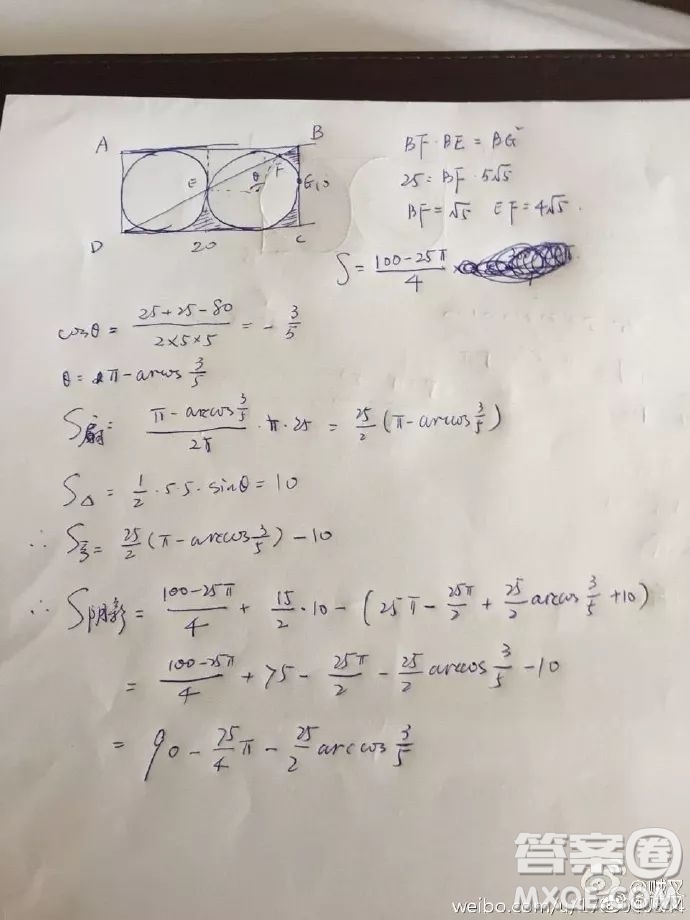 A B
E θ F G 10
D 20 C
BF · BE = BG²
25 = BF · 5√5
BF = √5 EF = 4√5 .
S = (100 - 25π)/4
cosθ = (25 + 25 - 80)/(2×5×5) = - 3/5
θ = π - arccos 3/5
S扇 = (π - arccos 3/5)/(2π) · π · 25 = 25/2 (π - arccos 3/5)
S△ = 1/2 · 5 · 5 · sinθ = 10
∴ S弓 = 25/2 (π - arccos 3/5) - 10
∴ S阴影 = (100 - 25π)/4 + 15/2 · 10 - (25π - 25π/2 + 25/2 arccos 3/5 + 10)
= (100 - 25π)/4 + 75 - 25π/2 - 25/2 arccos 3/5 - 10
= 90 - 75/4 π - 25/2 arccos 3/5
答案圈
MXQE.COM